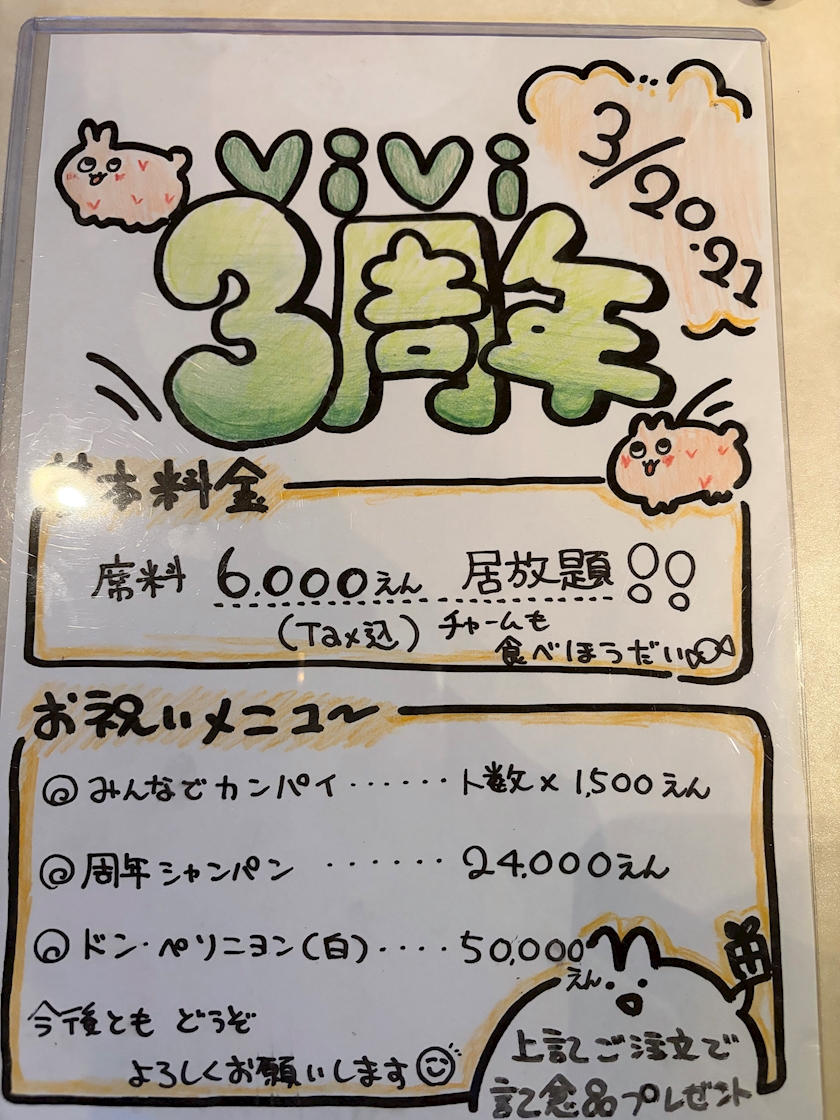 ViVi
3周年
3/20.21
基本料金
席料 6.000えん 居放題!!
(Tax込) チャームも
食べほうだい
お祝いメニュ〜
◎みんなでカンパイ・・・・・・ト数×1,500えん
◎周年シャンパン ・・・・・・ 24,000えん
◎ドン・ペリニヨン(白)・・・・50,000えん
今後とも どうぞ
よろしくお願いします
上記ご注文で
記念品プレゼント